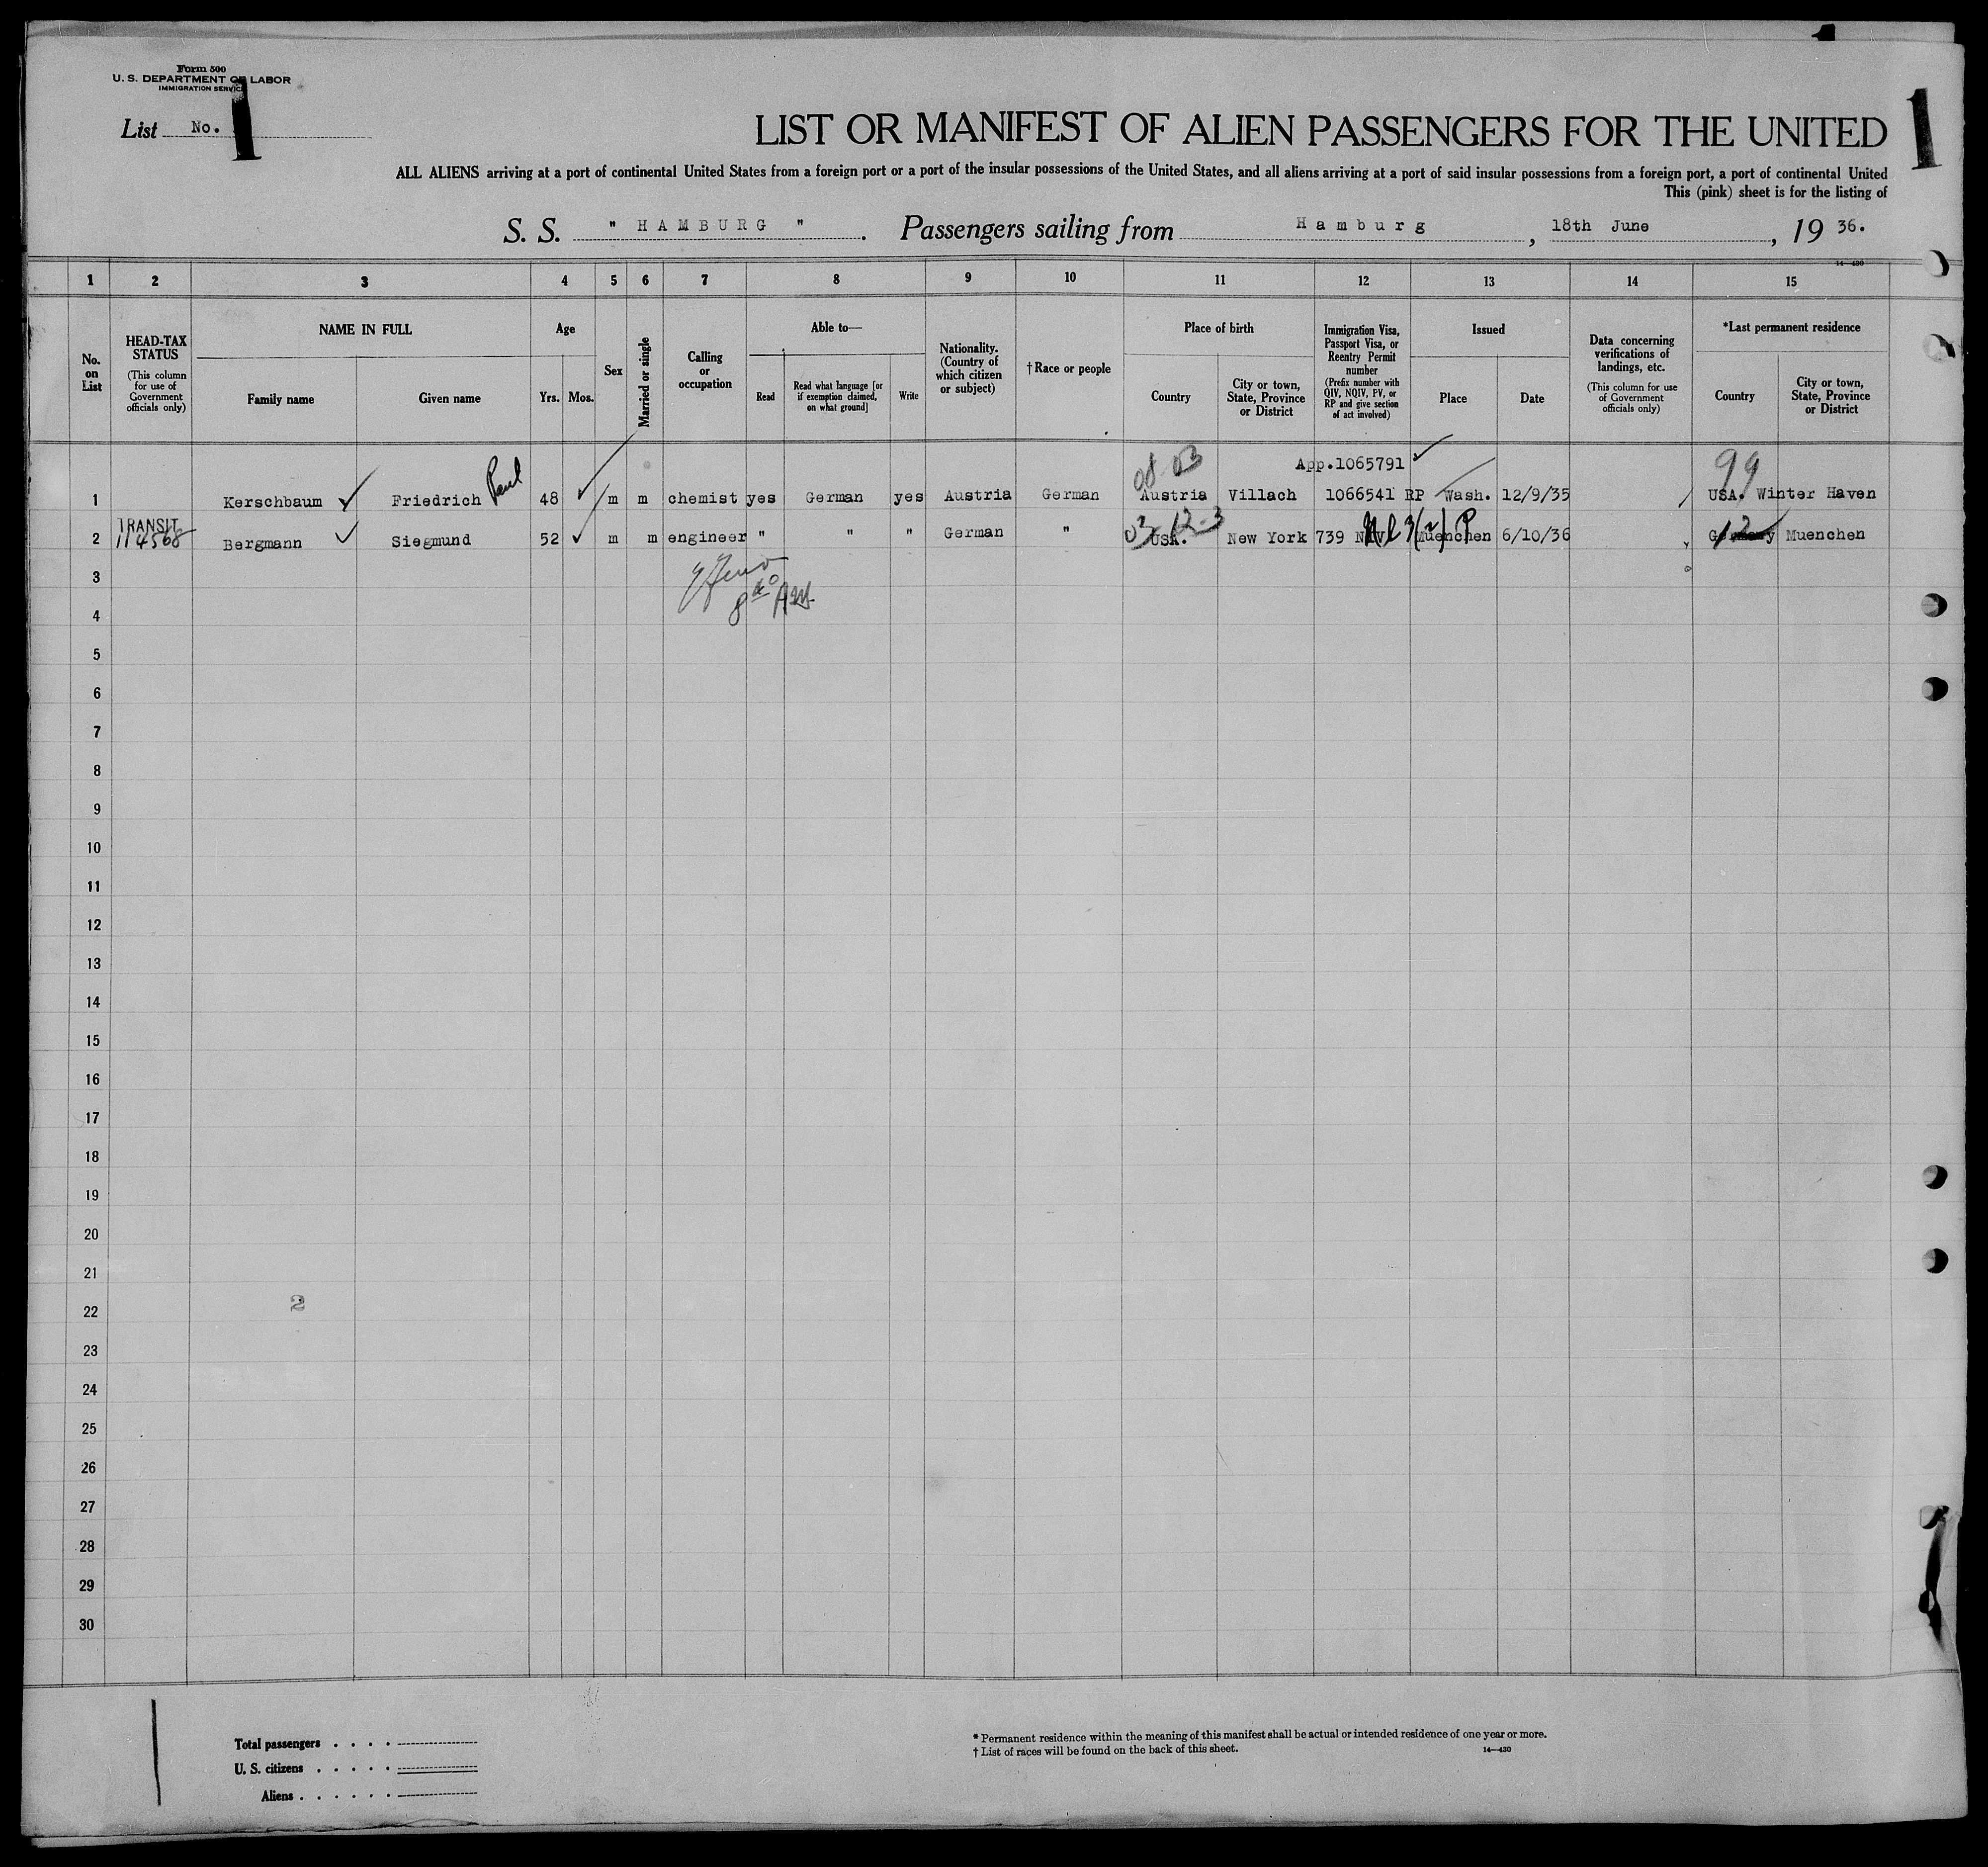 Form 500
U. S. DEPARTMENT OF LABOR
IMMIGRATION SERVICE
List No. 1
1
LIST OR MANIFEST OF ALIEN PASSENGERS FOR THE UNITED
ALL ALIENS arriving at a port of continental United States from a foreign port or a port of the insular possessions of the United States, and all aliens arriving at a port of said insular possessions from a foreign port, a port of continental United
This (pink) sheet is for the listing of
S. S. " HAMBURG ". Passengers sailing from Hamburg, 18th June, 19 36.
14—430
1 2 3 4 5 6 7 8 9 10 11 12 13 14 15
No. on List
HEAD-TAX STATUS
(This column for use of Government officials only)
NAME IN FULL
Family name
Given name
Age
Yrs. Mos.
Sex
Married or single
Calling or occupation
Able to—
Read
Read what language [or if exemption claimed, on what ground]
Write
Nationality. (Country of which citizen or subject)
†Race or people
Place of birth
Country
City or town, State, Province or District
Immigration Visa, Passport Visa, or Reentry Permit number
(Prefix number with QIV, NQIV, PV, or RP and give section of act involved)
Issued
Place
Date
Data concerning verifications of landings, etc.
(This column for use of Government officials only)
*Last permanent residence
Country
City or town, State, Province or District
08 03 App.1065791 99
1 Kerschbaum Friedrich Paul 48 m m chemist yes German yes Austria German Austria Villach 1066541 RP Wash. 12/9/35 USA. Winter Haven
TRANSIT
114568
2 Bergmann Siegmund 52 m m engineer " " " German " USA. New York 739 3(2) P Muenchen 6/10/36 Germany 12 Muenchen
3
4
5
6
7
8
9
10
11
12
13
14
15
16
17
18
19
20
21
22
2
23
24
25
26
27
28
29
30
Total passengers . . . .
U. S. citizens . . . . .
Aliens . . . . . .
* Permanent residence within the meaning of this manifest shall be actual or intended residence of one year or more.
† List of races will be found on the back of this sheet.
14—430